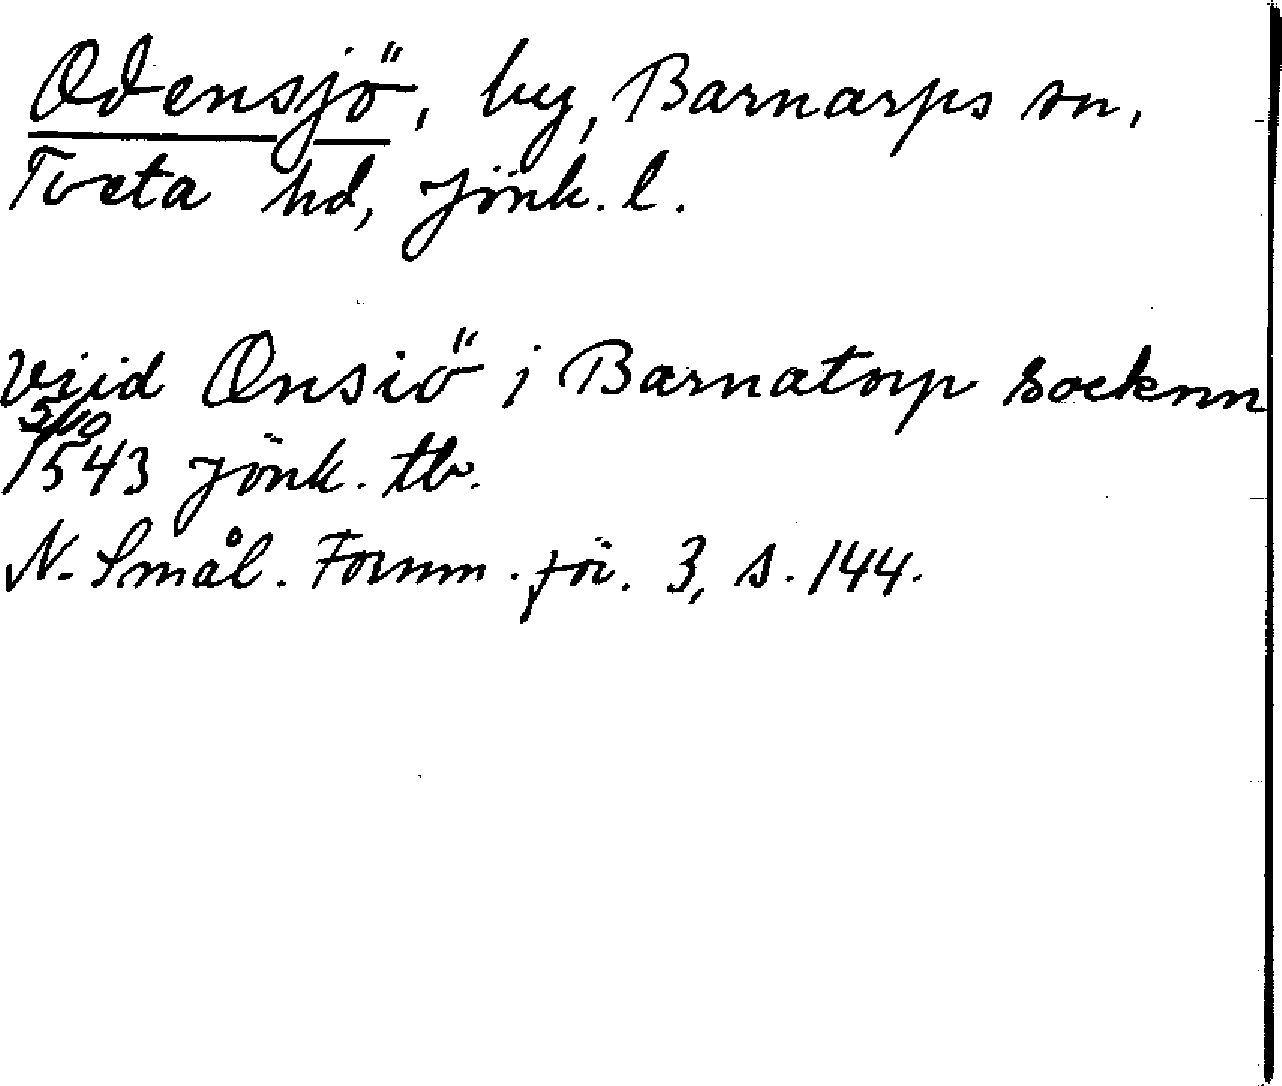 Odensjö, by, Barnarps sn,
Tveta hd, Jönk. l.
Viid Onsiö i Barnatorp socknn
5/10
1543 Jönk. tb.
N. Smål. Fornm. för. 3, s. 144.